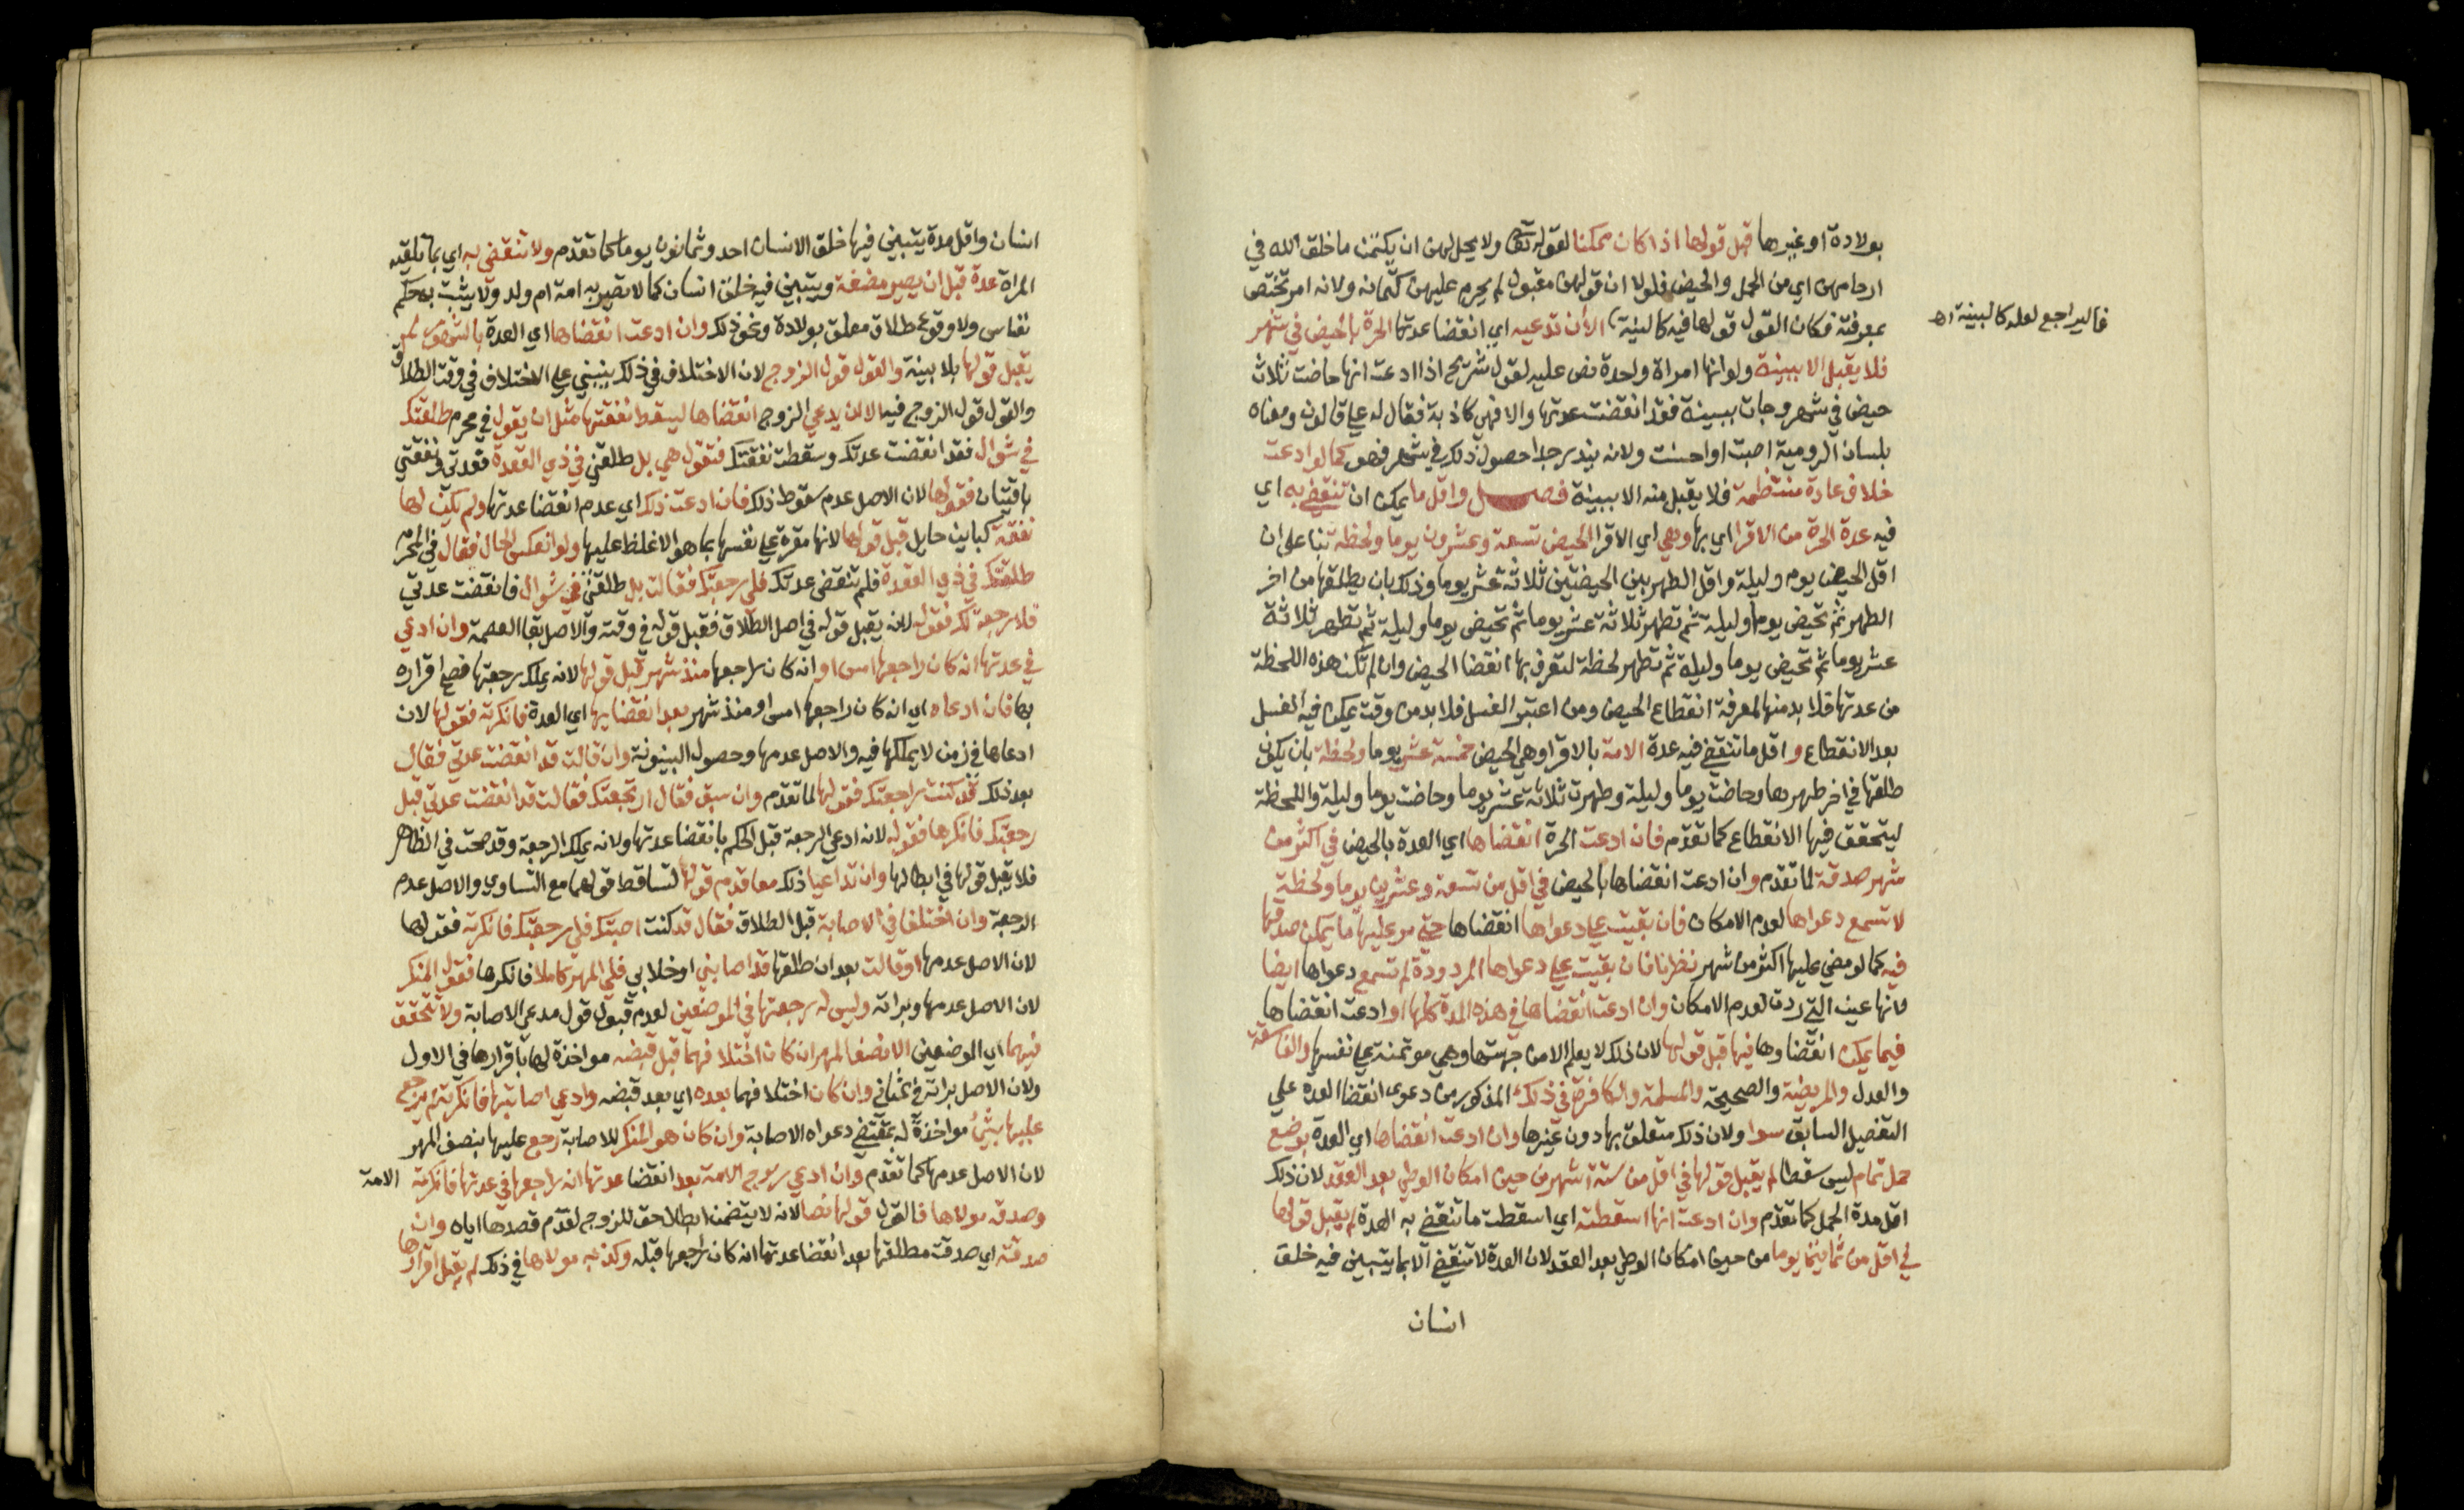 بولادة او غيرها قبل قولها اذا كان ممكنا لقوله تعالى ولا يحل لهن ان يكتمن ما خلق الله في
ارحامهن اي من الحمل والحيض فلولا ان قولهن مقبول لم يحرم عليهن كتمانه ولانه امر تختص
بمعرفته فكان القول قولها فيه كالبنية الا ان تدعيه اي انقضا عدتها الحرة بالحيض في شهر
فاليراجع لعله كالبينة اه
فلا يقبل الا ببينة ولو انها امراة واحدة نص عليه لقول شريح اذا ادعت انها حاضت ثلاث
حيض في شهر وجات ببينة فقد انقضت عدتها والا فهي كاذبة فقال له علي قالون ومعناه
بلسان الرومية اصبت او احسنت ولانه يندر جدا حصول ذلك في شهر فهو كما لو ادعت
خلاف عادة منتظمة فلا يقبل منه الا ببينة فصل واقل ما يمكن ان تنقضي به اي
فيه عدة الحرة من الاقرا اي بها وهي اي الاقرا الحيض تسعة وعشرون يوما ولحظة بنا على ان
اقل الحيض يوم وليلة واقل الطهر بين الحيضتين ثلاثة عشر يوما وذلك بان يطلقها من اخر
الطهر ثم تحيض يوما وليلة ثم تطهر ثلاثة عشر يوما ثم تحيض يوما وليلة ثم تطهر ثلاثة
عشر يوما ثم تحيض يوما وليلة ثم تطهر لحظة لتعرف بها انقضا الحيض وان لم تكن هذه اللحظة
من عدتها فلا بد منها لمعرفة انقطاع الحيض ومن اعتبر الغسل فلا بد من وقت يمكن فيه الغسل
بعد الانقطاع واقل ما تنقضي فيه عدة الامة بالاقرا وهي الحيض خمسة عشر يوما ولحظة بان يكون
طلقها في اخر طهرها وحاضت يوما وليلة وطهرت ثلاثة عشر يوما وحاضت يوما وليلة واللحظة
ليتحقق فيها الانقطاع كما تقدم فان ادعت الحرة انقضاها اي العدة بالحيض في اكثر من
شهر صدقة لما تقدم وان ادعت انقضاها بالحيض في اقل من تسعة وعشرين يوما ولحظة
لا تسمع دعواها لعدم الامكان فان بقيت علي دعواها انقضاها حتى مر عليها ما يمكن صدقها
فيه كما لو مضي عليها اكثر من شهر نظرنا فان بقيت علي دعواها المردودة لم تسمع دعواها ايضا
لانها عين التي ردت لعدم الامكان وان ادعت انقضاها في هذه المدة كلها او ادعت انقضاها
فيما يمكن انقضاوها فيها قبل قولها لان ذلك لا يعلم الا من جهتها وهي موتمنة علي نفسها والفاسقة
والعدل والمريضة والصحيحة والمسلمة والكافرة في ذلك المذكور من دعوى انقضا العدة علي
التفصيل السابق سوا ولان ذلك متعلق بها دون غيرها وان ادعت انقضاها اي العدة بوضع
حمل تمام ليس سقطا لم يقبل قولها في اقل من ستة اشهر من حين امكان الوطي بعد العقد لان ذلك
اقل مدة الحمل كما تقدم وان ادعت انها اسقطته اي اسقطت ما تنقضي به العدة لم يقبل قولها
في اقل من ثمانين يوما من حين امكان الوطي بعد العقد لان العدة لا تنقضي الا بما يتبين فيه خلق
انسان
انسان واقل مدة يتبين فيها خلق الانسان احد وثمانون يوما كما تقدم ولا تنقضي به اي بما تلقيه
المراة عدة قبل ان يصير مضغة ويتبين فيه خلق انسان كما لا تصير به امة ام ولد ولا يثبت به حكم
نفاس ولا وقوع طلاق معلق بولادة ونحو ذلك وان ادعت انقضاها اي العدة بالشهور لم
يقبل قولها بلا بينة والقول قول الزوج لان الاختلاف في ذلك ينبني علي الاختلاف في وقت الطلاق
والقول قول الزوج فيه الا ان يدعي الزوج انقضاها ليسقط نفقتها مثل ان يقول في محرم طلقتك
في شوال فقد انقضت عدتك وسقطت نفقتك فتقول هي بل طلقني في ذي القعدة فعدتي ونفقتي
باقيتان فقولها لان الاصل عدم سقوط ذلك فان ادعت ذلك اي عدم انقضا عدتها ولم يكن لها
نفقة كباين حايل قبل قولها لانها مقرة علي نفسها بما هو الاغلظ عليها ولو انعكس الحال فقال في المحرم
طلقتك في ذي القعدة فلم تنقض عدتك فلي رجعتك فقالت بل طلقني في شوال فانقضت عدتي
فلا رجعة لك فقوله لانه يقبل قوله في اصل الطلاق فقبل قوله في وقته والاصل بقا العصمة وان ادعي
في عدتها انه كان راجعها امس او انه كان راجعها منذ شهر قبل قولها لانه يملك رجعتها فصح اقراره
بها فان ادعاه اي انه كان راجعها امس او منذ شهر بعد انقضايها اي العدة فانكرته فقولها لان
ادعاها في زمن لا يملكها فيه والاصل عدمها وحصول البينونة وان قالت قد انقضت عدتي فقال
بعد ذلك قد كنت راجعتك فقولها لما تقدم وان سبق فقال ارتجعتك فقالت قد انقضت عدتي قبل
رجعتك فانكرها فقوله لانه ادعي الرجعة قبل الحكم بانقضا عدتها ولانه يملك الرجعة وقد صحت في الظاهر
فلا يقبل قولها في ابطالها وان تداعيا ذلك معا قدم قولها لتساقط قولهما مع التساوي والاصل عدم
الرجعة وان اختلفا في الاصابة قبل الطلاق فقال قد كنت اصبتك فلي رجعتك فانكرته فقولها
لان الاصل عدمها او قالت بعد ان طلقها قد اصابني او خلا بي فلي المهر كاملا فانكرها فقول المنكر
لان الاصل عدمها وبراته وليس له رجعتها في الموضعين لعدم قبول قول مدعي الاصابة ولا تستحق
فيهما اي الموضعين الا نصف المهر ان كان اختلافهما قبل قبضه مواخذة لها باقرارها في الاول
ولان الاصل براته في الثاني وان كان اختلافهما بعده اي بعد قبضه وادعي اصابتها فانكرته لم يرجع
عليها بشئ مواخذة له بمقتضي دعواه الاصابة وان كان هو المنكر للاصابة رجع عليها بنصف المهر
لان الاصل عدمها كما تقدم وان ادعي زوج الامة بعد انقضا عدتها انه راجعها في عدتها فانكرته الامة
وصدقه مولاها فالقول قولها نصا لانه لا يتضمن ابطلا حق للزوج لعدم قصدها اياه وان
صدقته اي صدقت مطلقها بعد انقضا عدتها انه كان راجعها قبله وكذبه مولاها في ذلك لم يقبل اقرارها